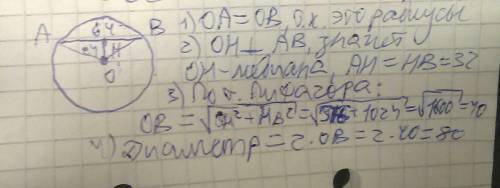 64
A
B
24
H
O
1) OA = OB, т.к. это радиусы
2) OH ⊥ AB, значит
OH - медиана, AH = HB = 32
3) По т. Пифагора:
OB = √OH² + HB² = √576 + 1024 = √1600 = 40
4) Диаметр = 2 · OB = 2 · 40 = 80